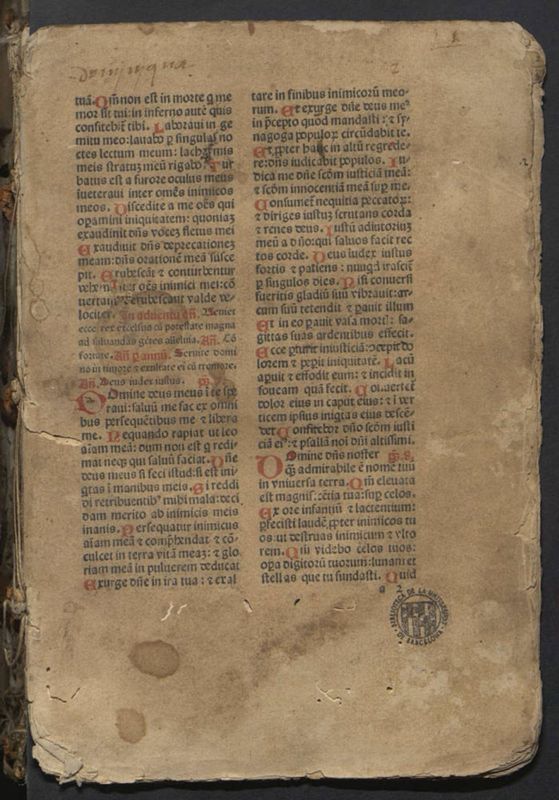 Dominyua
1
2
tuā. Qm̄ non est in morte q me
mor sit tui: in inferno autē quis
confitebit̄ tibi. Laboraui in ge
mitu meo: lauabo p̄ singulas no
ctes lectum meum: lachrimis
meis stratuʒ meū rigabo. Tur
batus est a furore oculus meus
iueteraui inter omēs inimicos
meos. Discedite a me oēs qui
opamini iniquitatem: quoniaʒ
exaudiuit dn̄s vocē fletus mei
Exaudiuit dn̄s deprecationeʒ
meam: dn̄s orationē meā susce
pit. Erubescāt & conturbentur
oēs inimici mei: cō
uertant᷑ & erubescant valde ve-
lociter. In aduentu an̄. Veniet
ecce rex excelsus cū potestate magna
ad saluandas gētes alleluia. An̄. Cō
fortate. An̄ p annū. Seruite domi
no in timore & exultate ei cū tremore.
An̄. Deus iudex iustus. ps.
Domine deus meus ī te spe
raui: saluū me fac ex omni
bus persequētibus me & libera
me. Nequando rapiat ut leo
aīam meā: dum non est q redi-
mat neqʒ qui saluū faciat. Dn̄e
deus meus si feci istud: si est ini-
qtas ī manibus meis. Si reddi
di retribuentibꝰ mihi mala: deci
dam merito ab inimicis meis
inanis. Persequatur inimicus
aīam meā & compħendat & cō-
culcet in terra vitā meaʒ: & glo
riam meā in puluerem deducat
Exurge dn̄e in ira tua: & exal
tare in finibus inimicorū meo-
rum. Et exurge dn̄e deus meꝰ
in p̄cepto quod mandasti: & sy-
nagoga populoꝝ circūdabit te.
Et p̄pter hanc in altū regrede-
re: dn̄s iudicabit populos. Iu-
dica me dn̄e scd̄m iusticiā meā:
& scd̄m innocentiā meā sup me.
Consumet᷑ nequitia peccatoꝝ:
& diriges iustuʒ scrutans corda
& renes deus. Iustū adiutoriuʒ
meū a dn̄o: qui saluos facit rec
tos corde. Deus iudex iustus
fortis & patiens: nunqd irascit᷑
p singulos dies. Nisi conuersi
fueritis gladiū suū vibrauit: ar-
cum suū tetendit & parauit illum
Et in eo parauit vasa mortis: sa-
gittas suas ardentibus effecit.
Ecce parturit iniusticiā: ɔcepit do
lorem & peperit iniquitatē. Lacū
aperuit & effodit eum: & incidit in
foueam quā fecit. Conuertet᷑
dolor eius in caput eius: & ī ver
ticem ipsius iniqtas eius descē-
det. Confitebor dn̄o scd̄m iusti
ciā eiꝰ: & psallā noī dn̄i altissimi.
Domine dn̄s noster ps.
qʒ admirabile ē nomē tuū
in vniuersa terra. Qm̄ eleuata
est magnifi: cētia tua: sup celos.
Ex ore infantiū & lactentium:
perfecisti laudē p̄pter inimicos tu
os: ut destruas inimicum & vlto
rem. Qm̄ videbo celos tuos:
opa digitorū tuorum: lunam et
stellas que tu fundasti. Quid
a 2
BIBLIOTECA DE LA UNIVERSIDAD
DE BARCELONA